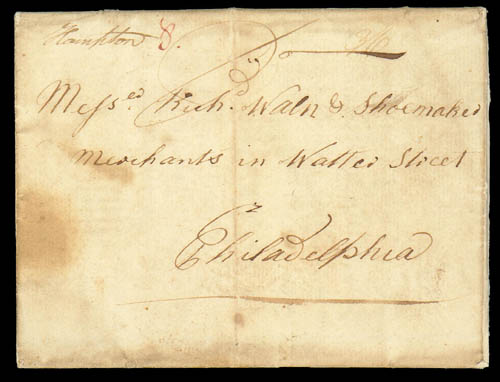 Hampton 8.
Messrs. Richd. Waln & Shoemaker
Merchants in Watter Street
Philadelphia